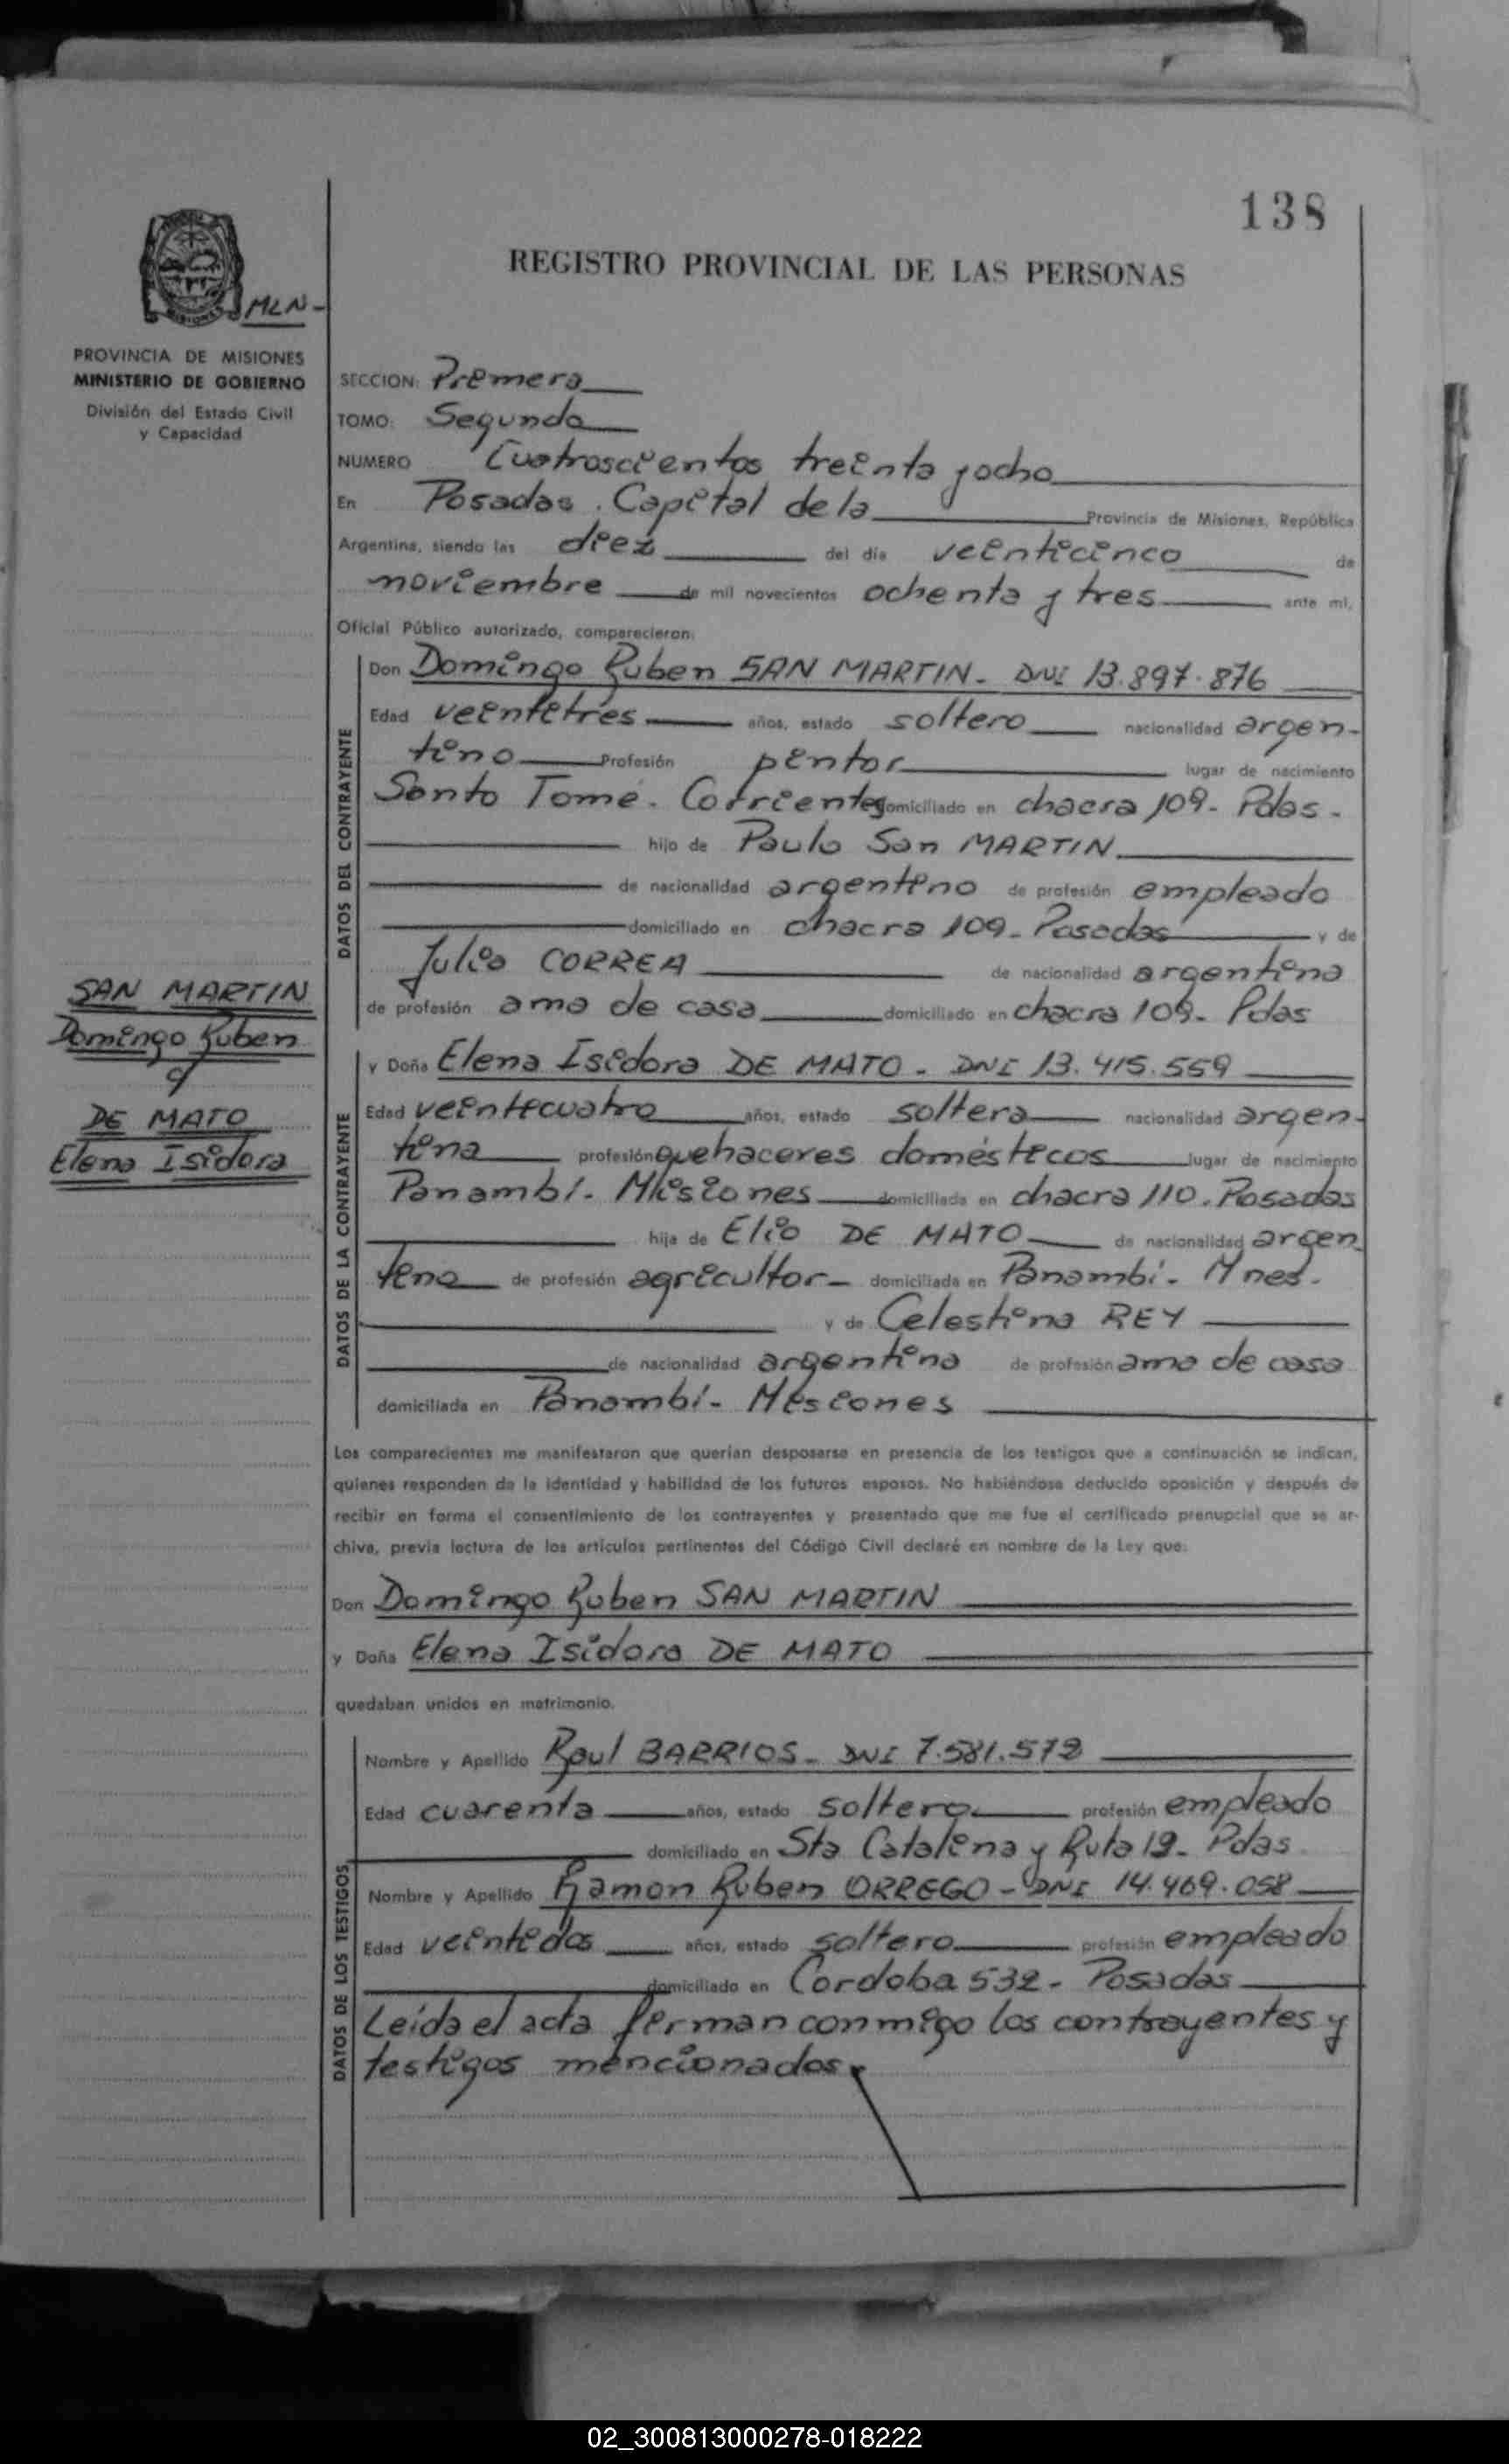 138
REGISTRO PROVINCIAL DE LAS PERSONAS
MLN-
PROVINCIA DE MISIONES
MINISTERIO DE GOBIERNO
División del Estado Civil
y Capacidad
SECCION: Primera
TOMO: Segundo
NUMERO Cuatroscientos treinta y ocho
En Posadas. Capital de la Provincia de Misiones, República
Argentina, siendo las diez del día veinticinco de
noviembre de mil novecientos ochenta y tres ante mí,
Oficial Público autorizado, comparecieron:
DATOS DEL CONTRAYENTE
Don Domingo Ruben SAN MARTIN. DNI 13.897.876
Edad veintitrés años, estado soltero nacionalidad argen-
tino Profesión pintor lugar de nacimiento
Santo Tomé. Corrientes domiciliado en chacra 109. Pdas.
hijo de Paulo San MARTIN
de nacionalidad argentino de profesión empleado
domiciliado en chacra 109. Posadas y de
Julia CORREA de nacionalidad argentina
de profesión ama de casa domiciliado en chacra 109. Pdas
SAN MARTIN
Domingo Ruben
y
DE MATO
Elena Isidora
DATOS DE LA CONTRAYENTE
y Doña Elena Isidora DE MATO. DNI 13.415.559
Edad veinticuatro años, estado soltera nacionalidad argen-
tina profesión quehaceres domésticos lugar de nacimiento
Panambí. Misiones domiciliada en chacra 110. Posadas
hija de Elio DE MATO de nacionalidad argen
tino de profesión agricultor domiciliada en Panambí. Mnes.
y de Celestina REY
de nacionalidad argentina de profesión ama de casa
domiciliada en Panambí. Misiones
Los comparecientes me manifestaron que querían desposarse en presencia de los testigos que a continuación se indican,
quienes responden de la identidad y habilidad de los futuros esposos. No habiéndose deducido oposición y después de
recibir en forma el consentimiento de los contrayentes y presentado que me fue el certificado prenupcial que se ar-
chiva, previa lectura de los artículos pertinentes del Código Civil declaré en nombre de la Ley que:
Don Domingo Ruben SAN MARTIN
y Doña Elena Isidora DE MATO
quedaban unidos en matrimonio.
DATOS DE LOS TESTIGOS
Nombre y Apellido Raul BARRIOS. DNI 7.581.572
Edad cuarenta años, estado soltero profesión empleado
domiciliado en Sta Catalina y Ruta 12. Pdas.
Nombre y Apellido Ramon Ruben ORREGO - DNI 14.469.058
Edad veintidos años, estado soltero profesión empleado
domiciliado en Cordoba 532. Posadas
Leída el acta firman conmigo los contrayentes y
testigos mencionados.
02_300813000278-018222